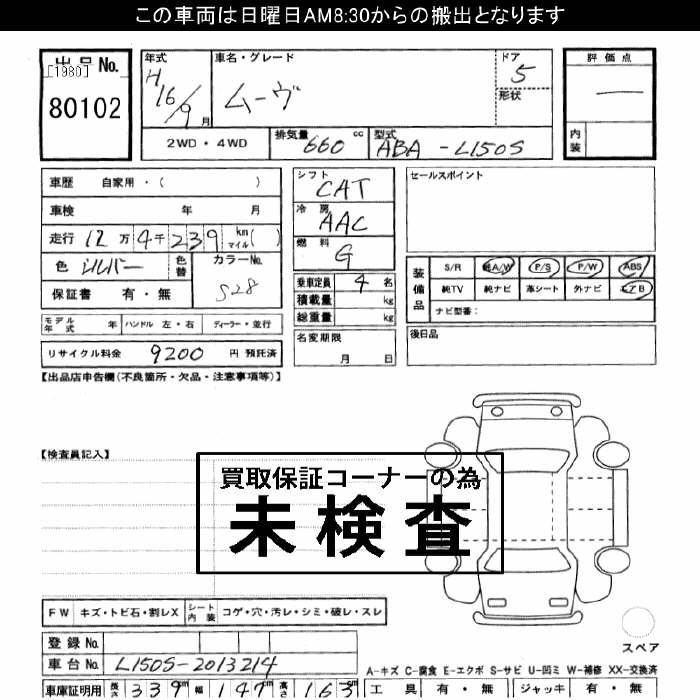 この車両は日曜日AM8:30からの搬出となります
出品No.
[1980]
80102
年式 H16/9月
車名・グレード ムーヴ
ドア 5
形状
評価点 ―
内装
2WD・4WD
排気量 660 cc
型式 ABA-L150S
車歴 自家用・( )
車検 年 月
走行 12万4千239 km マイル( )
色 シルバー 色替
カラーNo. S28
保証書 有・無
シフト CAT
冷房 AAC
燃料 G
乗車定員 4名
積載量 kg
総重量 kg
セールスポイント
装備品
S/R 純A/W P/S P/W ABS
純TV 純ナビ 革シート 外ナビ エアB
ナビ型番:
モデル年式 年 ハンドル 左・右 ディーラー・並行
リサイクル料金 9200 円 預託済
名変期限 月 日
後日品
【出品店申告欄(不良箇所・欠品・注意事項等)】
【検査員記入】
買取保証コーナーの為
未検査
FW キズ・トビ石・割レX シート内装 コゲ・穴・汚レ・シミ・破レ・スレ
登録No.
車台No. L150S-2013214
スペア
A-キズ C-腐食 E-エクボ S-サビ U-凹ミ W-補修 XX-交換済
車庫証明用 長さ 339cm 幅 147cm 高さ 163cm
工具 有・無 ジャッキ 有・無